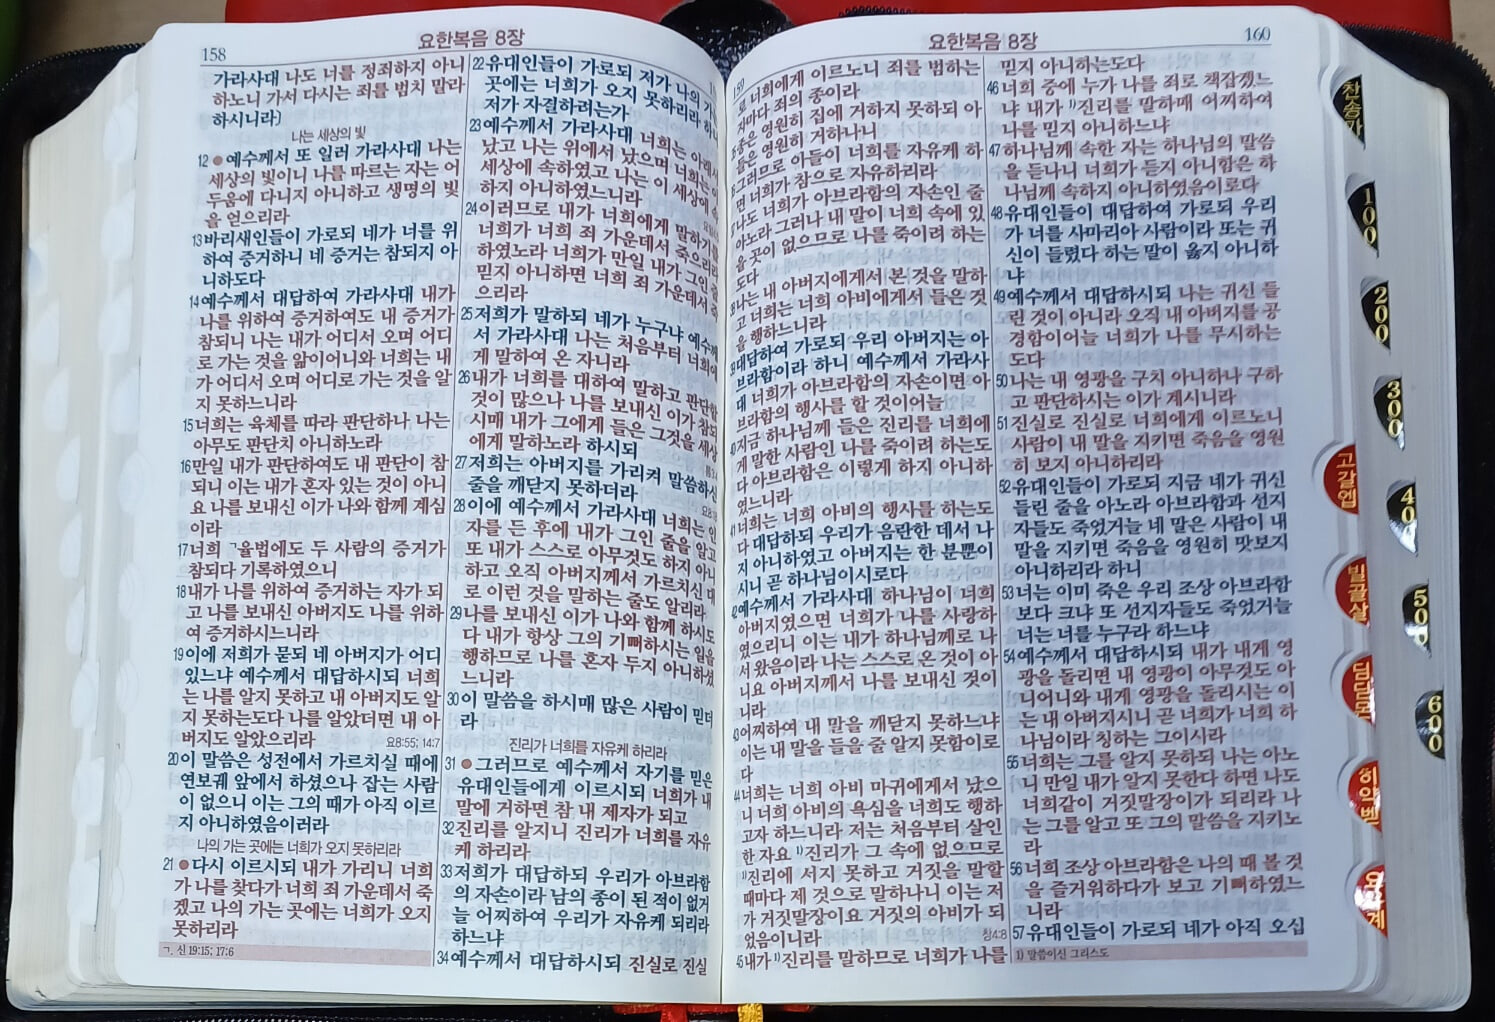 158
요한복음 8장
가라사대 나도 너를 정죄하지 아니
하노니 가서 다시는 죄를 범치 말라
하시니라]
나는 세상의 빛
12 ● 예수께서 또 일러 가라사대 나는
세상의 빛이니 나를 따르는 자는 어
두움에 다니지 아니하고 생명의 빛
을 얻으리라
13 바리새인들이 가로되 네가 너를 위
하여 증거하니 네 증거는 참되지 아
니하도다
14 예수께서 대답하여 가라사대 내가
나를 위하여 증거하여도 내 증거가
참되니 나는 내가 어디서 오며 어디
로 가는 것을 앎이어니와 너희는 내
가 어디서 오며 어디로 가는 것을 알
지 못하느니라
15 너희는 육체를 따라 판단하나 나는
아무도 판단치 아니하노라
16 만일 내가 판단하여도 내 판단이 참
되니 이는 내가 혼자 있는 것이 아니
요 나를 보내신 이가 나와 함께 계심
이라
17 너희 ㄱ율법에도 두 사람의 증거가
참되다 기록하였으니
18 내가 나를 위하여 증거하는 자가 되
고 나를 보내신 아버지도 나를 위하
여 증거하시느니라
19 이에 저희가 묻되 네 아버지가 어디
있느냐 예수께서 대답하시되 너희
는 나를 알지 못하고 내 아버지도 알
지 못하는도다 나를 알았더면 내 아
버지도 알았으리라 요8:55; 14:7
20 이 말씀은 성전에서 가르치실 때에
연보궤 앞에서 하셨으나 잡는 사람
이 없으니 이는 그의 때가 아직 이르
지 아니하였음이러라
나의 가는 곳에는 너희가 오지 못하리라
21 ● 다시 이르시되 내가 가리니 너희
가 나를 찾다가 너희 죄 가운데서 죽
겠고 나의 가는 곳에는 너희가 오지
못하리라
ㄱ. 신 19:15; 17:6
22 유대인들이 가로되 저가 나의 가
곳에는 너희가 오지 못하리라 하니
저가 자결하려는가
23 예수께서 가라사대 너희는 아래서
났고 나는 위에서 났으며 너희는 이
세상에 속하였고 나는 이 세상에 속
하지 아니하였느니라
24 이러므로 내가 너희에게 말하기를
너희가 너희 죄 가운데서 죽으리라
하였노라 너희가 만일 내가 그인 줄
믿지 아니하면 너희 죄 가운데서 죽
으리라
25 저희가 말하되 네가 누구냐 예수께
서 가라사대 나는 처음부터 너희에
게 말하여 온 자니라
26 내가 너희를 대하여 말하고 판단할
것이 많으나 나를 보내신 이가 참되
시매 내가 그에게 들은 그것을 세상
에게 말하노라 하시되
27 저희는 아버지를 가리켜 말씀하신
줄을 깨닫지 못하더라
28 이에 예수께서 가라사대 너희는 인
자를 든 후에 내가 그인 줄을 알고
또 내가 스스로 아무것도 하지 아니
하고 오직 아버지께서 가르치신 대
로 이런 것을 말하는 줄도 알리라
29 나를 보내신 이가 나와 함께 하시도
다 내가 항상 그의 기뻐하시는 일을
행하므로 나를 혼자 두지 아니하셨
느니라
30 이 말씀을 하시매 많은 사람이 믿더
라
진리가 너희를 자유케 하리라
31 ● 그러므로 예수께서 자기를 믿은
유대인들에게 이르시되 너희가 내
말에 거하면 참 내 제자가 되고
32 진리를 알지니 진리가 너희를 자유
케 하리라
33 저희가 대답하되 우리가 아브라함
의 자손이라 남의 종이 된 적이 없거
늘 어찌하여 우리가 자유케 되리라
하느냐
34 예수께서 대답하시되 진실로 진실
요한복음 8장
160
너희에게 이르노니 죄를 범하는
자마다 죄의 종이라
종은 영원히 집에 거하지 못하되 아
들은 영원히 거하나니
그러므로 아들이 너희를 자유케 하
면 너희가 참으로 자유하리라
나도 너희가 아브라함의 자손인 줄
아노라 그러나 내 말이 너희 속에 있
을 곳이 없으므로 나를 죽이려 하는
도다
나는 내 아버지에게서 본 것을 말하
고 너희는 너희 아비에게서 들은 것
을 행하느니라
대답하여 가로되 우리 아버지는 아
브라함이라 하니 예수께서 가라사
대 너희가 아브라함의 자손이면 아
브라함의 행사를 할 것이어늘
지금 하나님께 들은 진리를 너희에
게 말한 사람인 나를 죽이려 하는도
다 아브라함은 이렇게 하지 아니하
였느니라
41 너희는 너희 아비의 행사를 하는도
다 대답하되 우리가 음란한 데서 나
지 아니하였고 아버지는 한 분뿐이
시니 곧 하나님이시로다
42 예수께서 가라사대 하나님이 너희
아버지였으면 너희가 나를 사랑하
였으리니 이는 내가 하나님께로 나
서 왔음이라 나는 스스로 온 것이 아
니요 아버지께서 나를 보내신 것이
니라
43 어찌하여 내 말을 깨닫지 못하느냐
이는 내 말을 들을 줄 알지 못함이로
다
44 너희는 너희 아비 마귀에게서 났으
니 너희 아비의 욕심을 너희도 행하
고자 하느니라 저는 처음부터 살인
한 자요 1)진리가 그 속에 없으므로
1)진리에 서지 못하고 거짓을 말할
때마다 제 것으로 말하나니 이는 저
가 거짓말장이요 거짓의 아비가 되
었음이니라 창4:8
45 내가 1)진리를 말하므로 너희가 나를
믿지 아니하는도다
46 너희 중에 누가 나를 죄로 책잡겠느
냐 내가 1)진리를 말하매 어찌하여
나를 믿지 아니하느냐
47 하나님께 속한 자는 하나님의 말씀
을 듣나니 너희가 듣지 아니함은 하
나님께 속하지 아니하였음이로다
48 유대인들이 대답하여 가로되 우리
가 너를 사마리아 사람이라 또는 귀
신이 들렸다 하는 말이 옳지 아니하
냐
49 예수께서 대답하시되 나는 귀신 들
린 것이 아니라 오직 내 아버지를 공
경함이어늘 너희가 나를 무시하는
도다
50 나는 내 영광을 구치 아니하나 구하
고 판단하시는 이가 계시니라
51 진실로 진실로 너희에게 이르노니
사람이 내 말을 지키면 죽음을 영원
히 보지 아니하리라
52 유대인들이 가로되 지금 네가 귀신
들린 줄을 아노라 아브라함과 선지
자들도 죽었거늘 네 말은 사람이 내
말을 지키면 죽음을 영원히 맛보지
아니하리라 하니
53 너는 이미 죽은 우리 조상 아브라함
보다 크냐 또 선지자들도 죽었거늘
너는 너를 누구라 하느냐
54 예수께서 대답하시되 내가 내게 영
광을 돌리면 내 영광이 아무것도 아
니어니와 내게 영광을 돌리시는 이
는 내 아버지시니 곧 너희가 너희 하
나님이라 칭하는 그이시라
55 너희는 그를 알지 못하되 나는 아노
니 만일 내가 알지 못한다 하면 나도
너희같이 거짓말장이가 되리라 나
는 그를 알고 또 그의 말씀을 지키노
라
56 너희 조상 아브라함은 나의 때 볼 것
을 즐거워하다가 보고 기뻐하였느
니라
57 유대인들이 가로되 네가 아직 오십
1) 말씀이신 그리스도
찬송가
100
200
300
400
500
600
고갈엡
빌골살
딤딛몬
히약벧
요유계